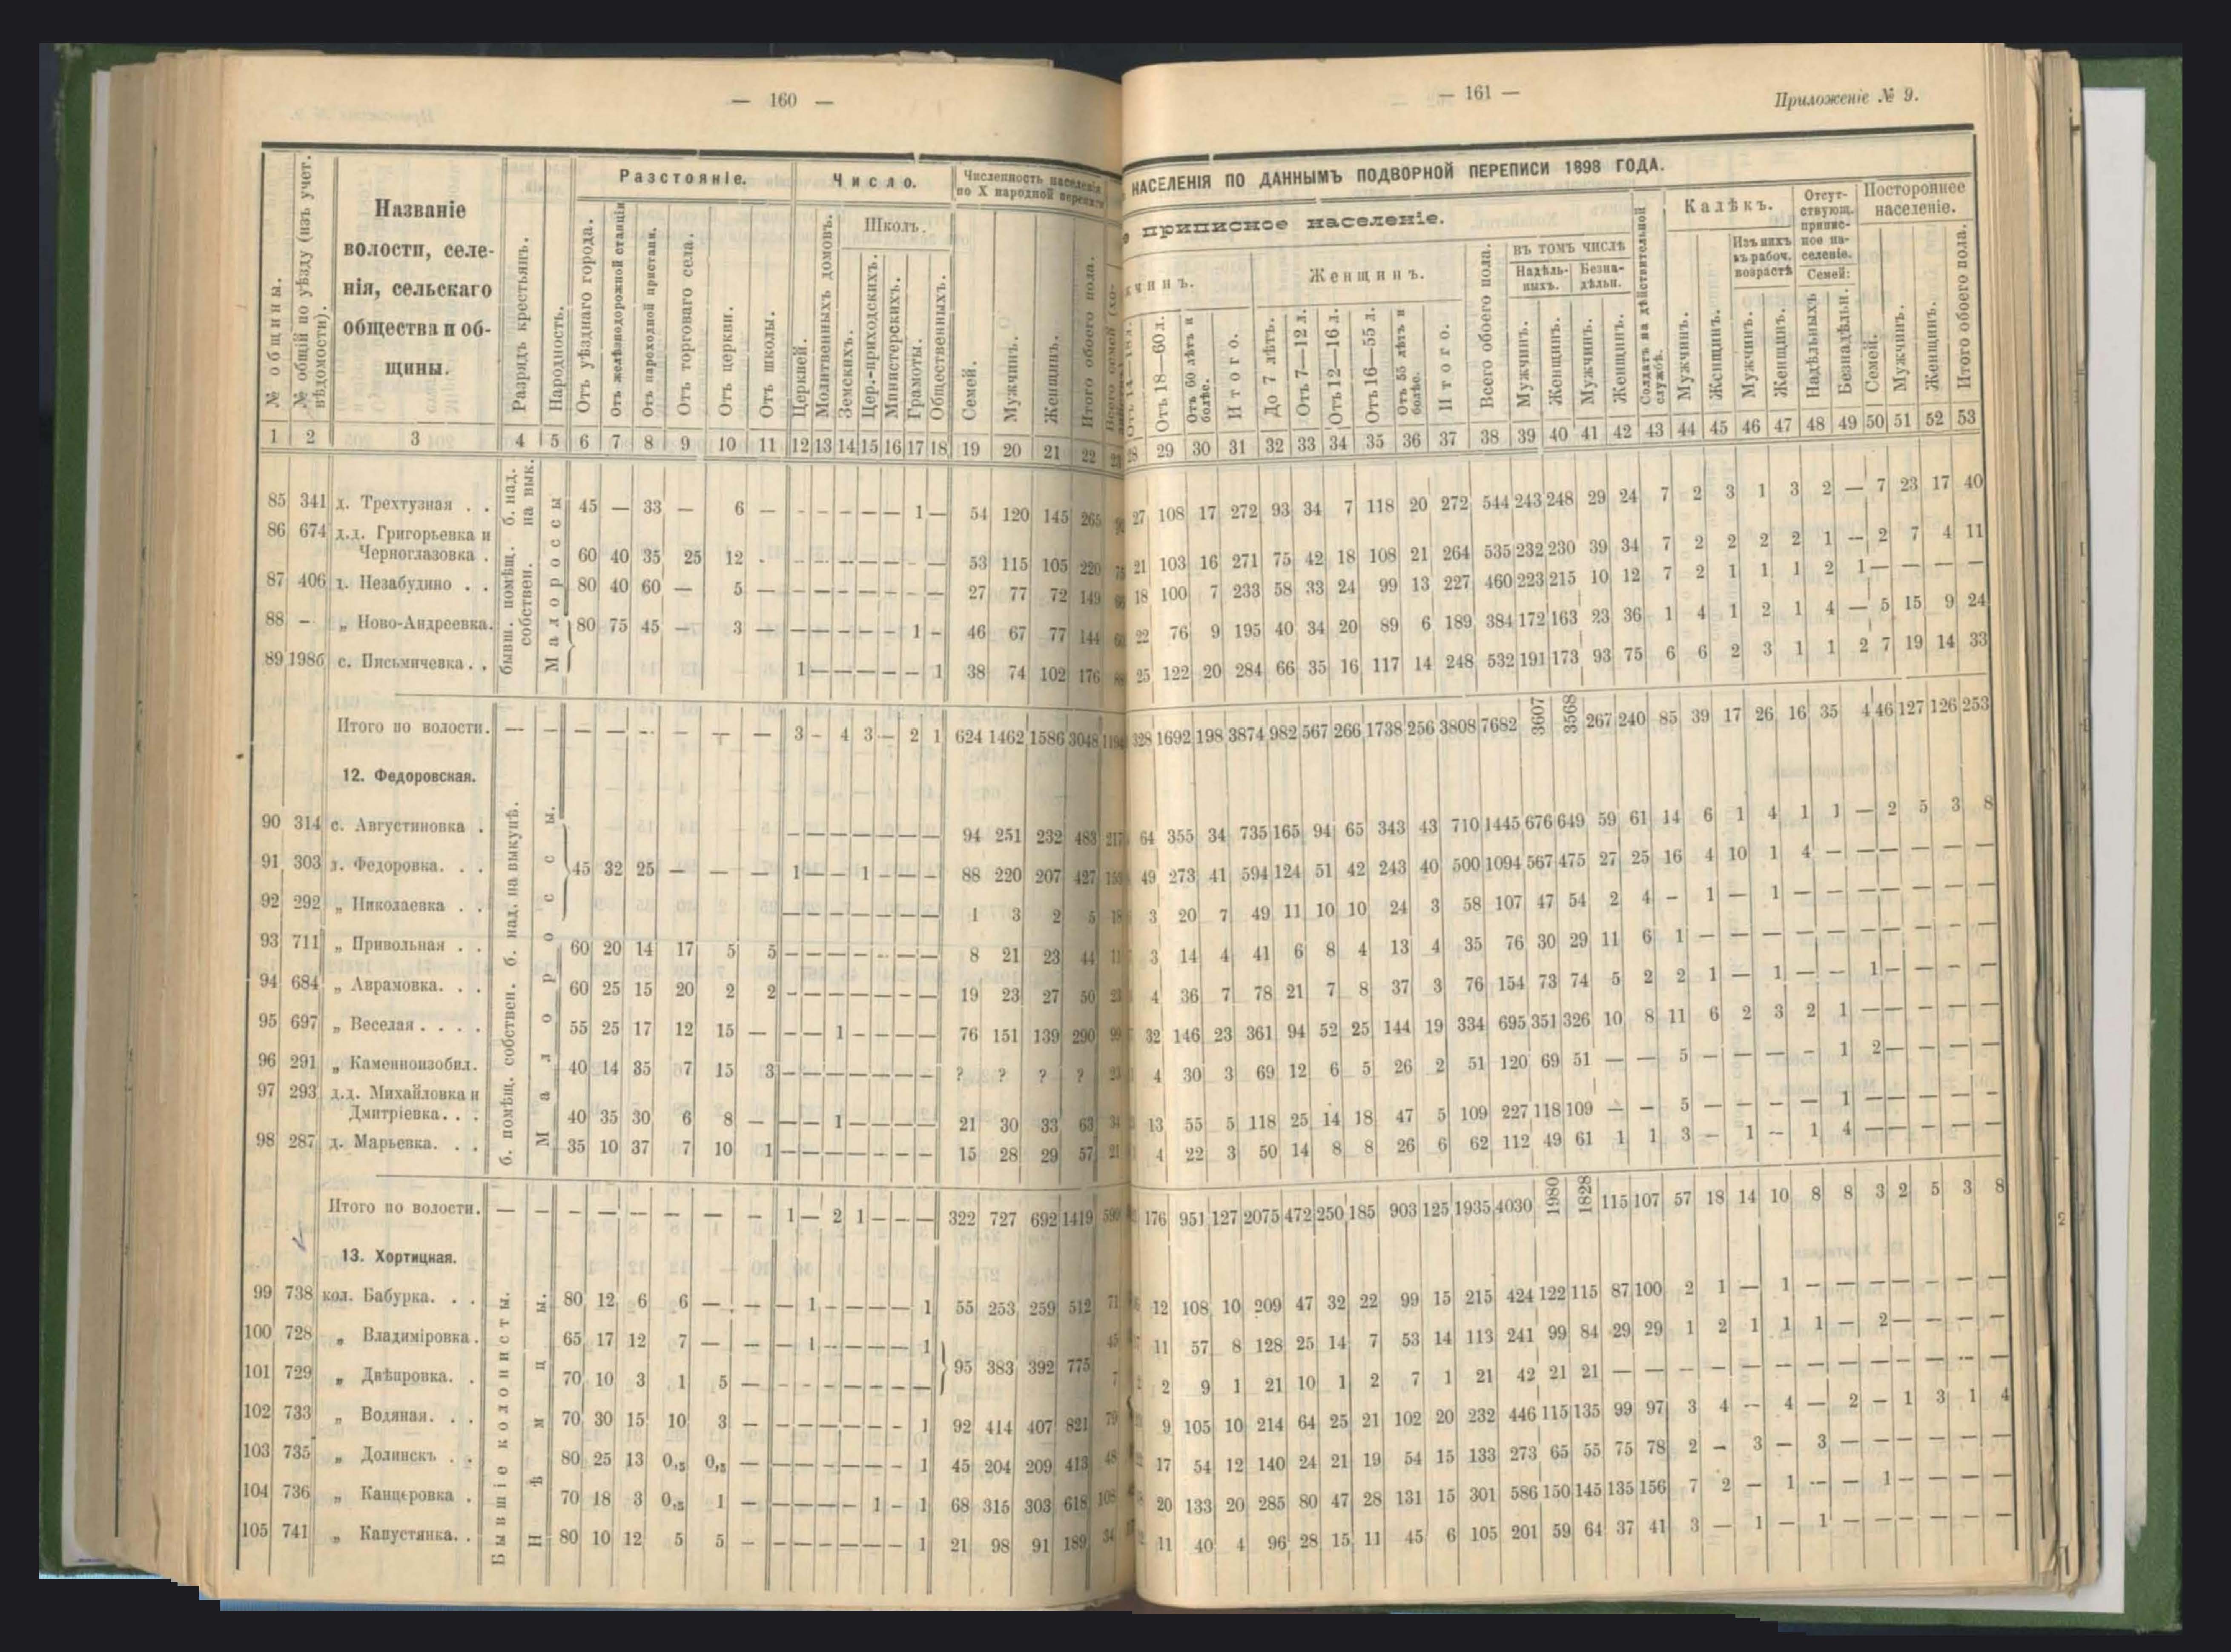 — 160 —
№ общины.
№ общій по уѣзду (изъ учет. вѣдомости).
Названіе
волости, селе-
нія, сельскаго
общества и об-
щины.
Разрядъ крестьянъ.
Народность.
Разстояніе.
Отъ уѣзднаго города.
Отъ желѣзнодорожной станціи
Отъ пароходной пристани.
Отъ торговаго села.
Отъ церкви.
Отъ школы.
Число.
Церквей.
Молитвенныхъ домовъ.
Школъ.
Земскихъ.
Цер.-приходскихъ.
Министерскихъ.
Грамоты.
Общественныхъ.
Численность населенія
по X народной переписи
Семей.
Мужчинъ.
Женщинъ.
Итого обоего пола.
1 2 3 4 5 6 7 8 9 10 11 12 13 14 15 16 17 18 19 20 21 22 23
б. над. на вык.
бывш. помѣщ. собствен.
Малороссы
85 341 д. Трехтузная . . 45 — 33 — 6 — — — — — — 1 — 54 120 145 265
86 674 д.д. Григорьевка и
Черноглазовка . 60 40 35 25 12 — — — — — — — 53 115 105 220
87 406 д. Незабудино . . 80 40 60 — 5 — — — — — — — — 27 77 72 149
88 — „ Ново-Андреевка. 80 75 45 — 3 — — — — — — 1 — 46 67 77 144
89 198б с. Письмичевка . . 1 — — — — — 1 38 74 102 176
Итого по волости. — — — — — — — — 3 — 4 3 — 2 1 624 1462 1586 3048 1194
12. Федоровская.
б. помѣщ. собствен. б. над. на выкупѣ.
Малороссы.
90 314 с. Августиновка . — — — — — — — 94 251 232 483 217
91 303 д. Федоровка. . . 45 32 25 — — — 1 — — 1 — — — 88 220 207 427 159
92 292 „ Николаевка . . — — — — — — — 1 3 2 5 18
93 711 „ Привольная . . 60 20 14 17 5 5 — — — — — — — 8 21 23 44 11
94 684 „ Аврамовка. . . 60 25 15 20 2 2 — — — — — — — 19 23 27 50 23
95 697 „ Веселая . . . . 55 25 17 12 15 — — — 1 — — — — 76 151 139 290 99
96 291 „ Каменноизобил. 40 14 35 7 15 3 — — — — — — — ? ? ? ? 23
97 293 д.д. Михайловка и
Дмитріевка. . . 40 35 30 6 8 — — — 1 — — — — 21 30 33 63 34
98 287 д. Марьевка. . . 35 10 37 7 10 1 — — — — — — — 15 28 29 57 21
Итого по волости. — — — — — — — — 1 — 2 1 — — — 322 727 692 1419 599
13. Хортицкая.
Бывшіе колонисты.
Нѣмцы.
99 738 кол. Бабурка. . . 80 12 6 6 — — — 1 — — — — 1 55 253 259 512 71
100 728 „ Владиміровка . 65 17 12 7 — — — 1 — — — — 1
101 729 „ Днѣпровка. . 70 10 3 1 5 — — — — — — — — 95 383 392 775 7
102 733 „ Водяная. . . 70 30 15 10 3 — — — — — — — 1 92 414 407 821 79
103 735 „ Долинскъ . . 80 25 13 0,5 0,5 — — — — — — — 1 45 204 209 413 48
104 736 „ Канцеровка . 70 18 3 0,5 1 — — — — — 1 — 1 68 315 303 618 108
105 741 „ Капустянка. . 80 10 12 5 5 — — — — — — — 1 21 98 91 189 34
— 161 —
Приложеніе № 9.
НАСЕЛЕНІЯ ПО ДАННЫМЪ ПОДВОРНОЙ ПЕРЕПИСИ 1898 ГОДА.
приписное населеніе.
Отъ 18—60 л.
Отъ 60 лѣтъ и болѣе.
Итого.
Женщинъ.
До 7 лѣтъ.
Отъ 7—12 л.
Отъ 12—16 л.
Отъ 16—55 л.
Отъ 55 лѣтъ и болѣе.
Итого.
Всего обоего пола.
въ томъ числѣ
Надѣль-
ныхъ.
Безна-
дѣльн.
Мужчинъ.
Женщинъ.
Мужчинъ.
Женщинъ.
Солдатъ на дѣйствительной службѣ.
Калѣкъ.
Мужчинъ.
Женщинъ.
Изъ нихъ
въ рабоч.
возрастѣ
Мужчинъ.
Женщинъ.
Отсут-
ствующ.
приписное
населеніе.
Семей:
Надѣльныхъ
Безнадѣльн.
Постороннее
населеніе.
Семей.
Мужчинъ.
Женщинъ.
Итого обоего пола.
28 29 30 31 32 33 34 35 36 37 38 39 40 41 42 43 44 45 46 47 48 49 50 51 52 53
27 108 17 272 93 34 7 118 20 272 544 243 248 29 24 7 2 3 1 3 2 — 7 23 17 40
21 103 16 271 75 42 18 108 21 264 535 232 230 39 34 7 2 2 2 2 1 — 2 7 4 11
18 100 7 233 58 33 24 99 13 227 460 223 215 10 12 7 2 1 1 1 2 1 — — — —
22 76 9 195 40 34 20 89 6 189 384 172 163 23 36 1 4 1 2 1 4 — 5 15 9 24
25 122 20 284 66 35 16 117 14 248 532 191 173 93 75 6 6 2 3 1 1 2 7 19 14 33
328 1692 198 3874 982 567 266 1738 256 3808 7682 3607 3568 267 240 85 39 17 26 16 35 4 46 127 126 253
64 355 34 735 165 94 65 343 43 710 1445 676 649 59 61 14 6 1 4 1 1 — 2 5 3 8
49 273 41 594 124 51 42 243 40 500 1094 567 475 27 25 16 4 10 1 4 — — — — — —
3 20 7 49 11 10 10 24 3 58 107 47 54 2 4 — — 1 — 1 — — — — — —
3 14 4 41 6 8 4 13 4 35 76 30 29 11 6 1 — — — — — — — — — —
4 36 7 78 21 7 8 37 3 76 154 73 74 5 2 2 1 — 1 — — 1 — — — —
32 146 23 361 94 52 25 144 19 334 695 351 326 10 8 11 6 2 3 2 1 — — — — —
4 30 3 69 12 6 5 26 2 51 120 69 51 — — 5 — — — — 1 2 — — — —
13 55 5 118 25 14 18 47 5 109 227 118 109 — — 5 — — — — 1 — — — — —
4 22 3 50 14 8 8 26 6 62 112 49 61 1 1 3 — 1 — 1 4 — — — — —
176 951 127 2075 472 250 185 903 125 1935 4030 1980 1828 115 107 57 18 14 10 8 8 3 2 5 3 8
12 108 10 209 47 32 22 99 15 215 424 122 115 87 100 2 1 — 1 — — — — — — —
11 57 8 128 25 14 7 53 14 113 241 99 84 29 29 1 2 1 1 1 — 2 — — — —
2 9 1 21 10 1 2 7 1 21 42 21 21 — — — — — — — — — — — — —
9 105 10 214 64 25 21 102 20 232 446 115 135 99 97 3 4 — 4 — 2 — 1 3 1 4
17 54 12 140 24 21 19 54 15 133 273 65 55 75 78 2 — 3 — 3 — — — — — —
20 133 20 285 80 47 28 131 15 301 586 150 145 135 156 7 2 — 1 — — 1 — — — —
11 40 4 96 28 15 11 45 6 105 201 59 64 37 41 3 — 1 — 1 — — — — — —